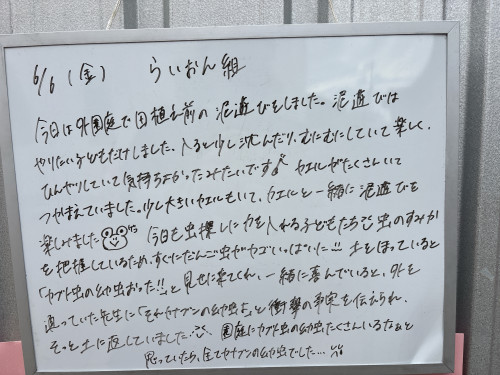 6/6 (金) らいおん組
今日は外園庭で田植え前の泥遊びをしました。泥遊びは
やりたい子どもだけしました。入ると少し沈んだり、むにむにしていて楽しく、
ひんやりしていて気持ちよかったみたいです♪ カエルがたくさんいて
つかまえていました。少し大きいカエルもいて、カエルと一緒に泥遊びを
楽しみました 今日も虫探しに力を入れる子どもたち 虫のすみか
を把握しているため、すぐにだんご虫がカゴいっぱいに!! 土をほっていると
「カブト虫の幼虫おった!!」と見せに来てくれ、一緒に喜んでいると、外を
通っていた先生に「それカナブンの幼虫よ」と衝撃の事実を伝えられ、
そっと土に返していました… 園庭にカブト虫の幼虫たくさんいるなぁと
思っていたら、全てカナブンの幼虫でした…